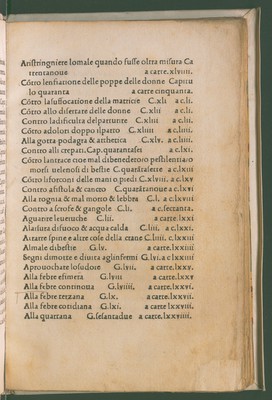 Aristringniere lo male quando fusse oltra misura Ca
trentanoue a carte.xlviiii.
Cõtro lensiatione delle poppe delle donne Capitu
lo quaranta a carte cinquanta.
Cõtro la suffocatione della matricie C.xli a c.li.
Cõtro allo disertare delle donne C.xlii a c.li.
Contro la dificulta del parturire C.xliii a c.lii.
Cõtro a dolori doppo il parto C.xliiii a c.liii.
Alla gotta podagra & arthetica C.xlv. a c.liiii.
Contro alli crepati. Cap. quarantasei a c.lxi.
morsi uelenosi di bestie C. quarãtasette a c.lxiii
Cõtro lisforconi delle mani o piedi C.xlviii. a c.lxv
Contro a fistola & cancro C. quarãtanoue a c.lxvi
Alla rognia & mal morto & lebbra C.l. a c.lxviii
Contro a scrofe & gangole C.li. a c.settanta.
Aguarire le uerruche C.lii. a carte.lxxi
A larsura di fuoco & acqua calda C.liii. a c.lxxi.
A trarre spine e altre cose della carne C.liiii. c.lxxii
Al male di bestie G.lv. a carte.lxxiiii
Segni di morte e di uita agli infermi G.lvi. a c.lxxiiii
A prouochare lo sudore G.lvii. a carte.lxxv.
Alla febre efimera G.lviii a carte.lxxv
Alla febre continoua G.lviiii, a carte.lxxvi.
Alla febre terzana G.lx. a carte.lxxvii.
Alla febre cotidiana G.lxi. a carte.lxxviii.
Alla quartana G. sesantadue a carte.lxxviiii.